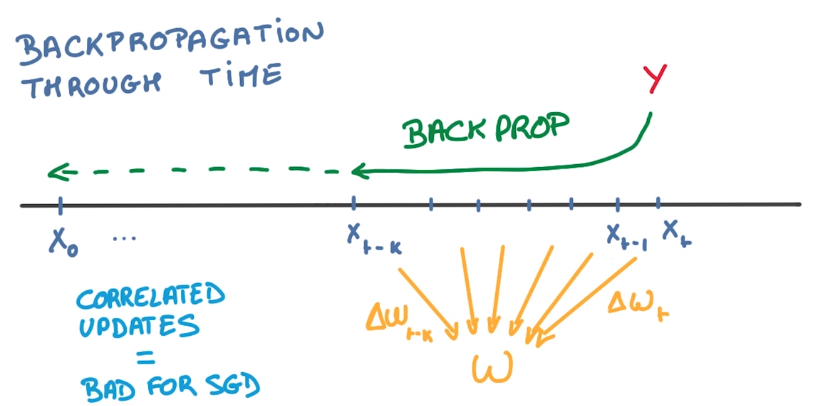 BACKPROPAGATION
THROUGH TIME
Y
BACK PROP
X₀ ... Xt-k Xt-1 Xt
Δωt-k Δωt
ω
CORRELATED
UPDATES
=
BAD FOR SGD